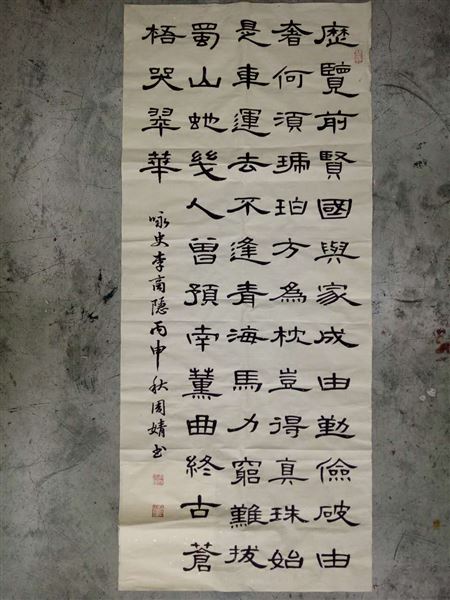 歷覽前賢國與家成由勤儉破由
奢何須琥珀方為枕豈得真珠始
是車運去不逢青海馬力窮難拔
蜀山虵幾人曾預南薰曲終古蒼
梧哭翠華
咏史李商隐丙申秋周婧书